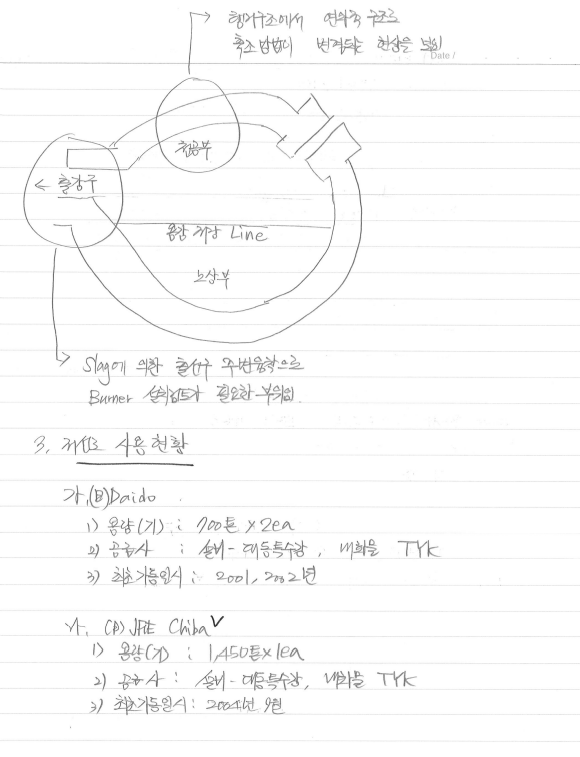 행거구조에서 연와축 구조로
축조 방법이 변경되는 현상을 보임
Date /
천공부
← 출강구
용강 저장 Line
노상부
Slag에 의한 출선구 주변융착으로
Burner 설치검토가 필요한 부위임.
3. 저선로 사용현황
가. (日)Daido
1) 용량(기) : 700톤 × 2ea
2) 공급사 : 설비-대동특수강, 내화물 TYK
3) 최초가동일시 : 2001, 2002년
나. (日) JFE Chiba V
1) 용량(기) : 1,450톤×1ea
2) 공급사 : 설비-대동특수강, 내화물 TYK
3) 최초가동일시 : 2004년 9월